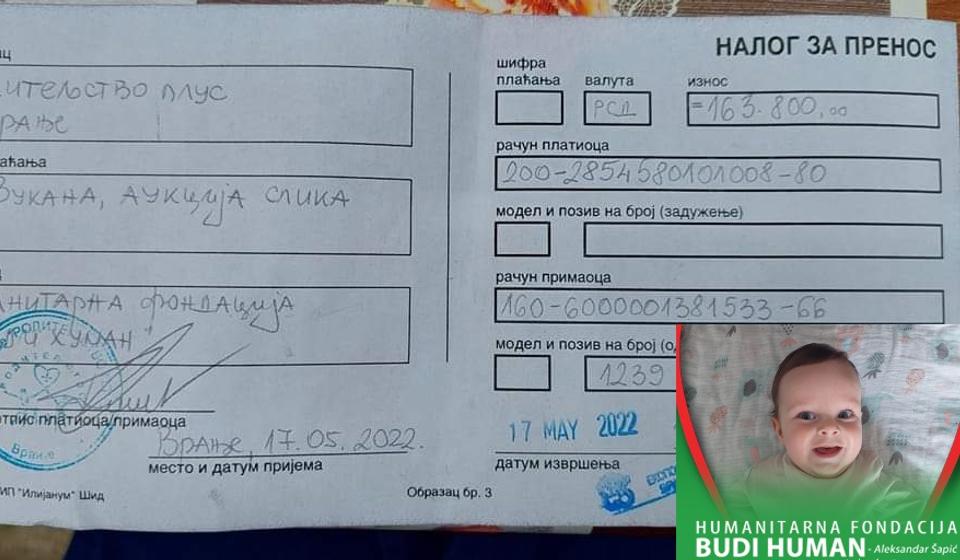 НАЛОГ ЗА ПРЕНОС
ИТЕЉСТВО ПЛУС
РАЊЕ
аћања
ВУКАНА, АУКЦИЈА СЛИКА
АНИТАРНА ФОНДАЦИЈА
ХУМАН"
отпис платиоца/примаоца
Врање, 17.05.2022.
место и датум пријема
ИП "Илијанум" Шид
Образац бр. 3
шифра
плаћања
валута
износ
РСД
=163.800,00
рачун платиоца
200-2854580101008-80
модел и позив на број (задужење)
рачун примаоца
160-6000001381533-66
модел и позив на број (о
1239
17 MAY 2022
датум извршења
Врање
HUMANITARNA FONDACIJA
BUDI HUMAN - Aleksandar Šapić